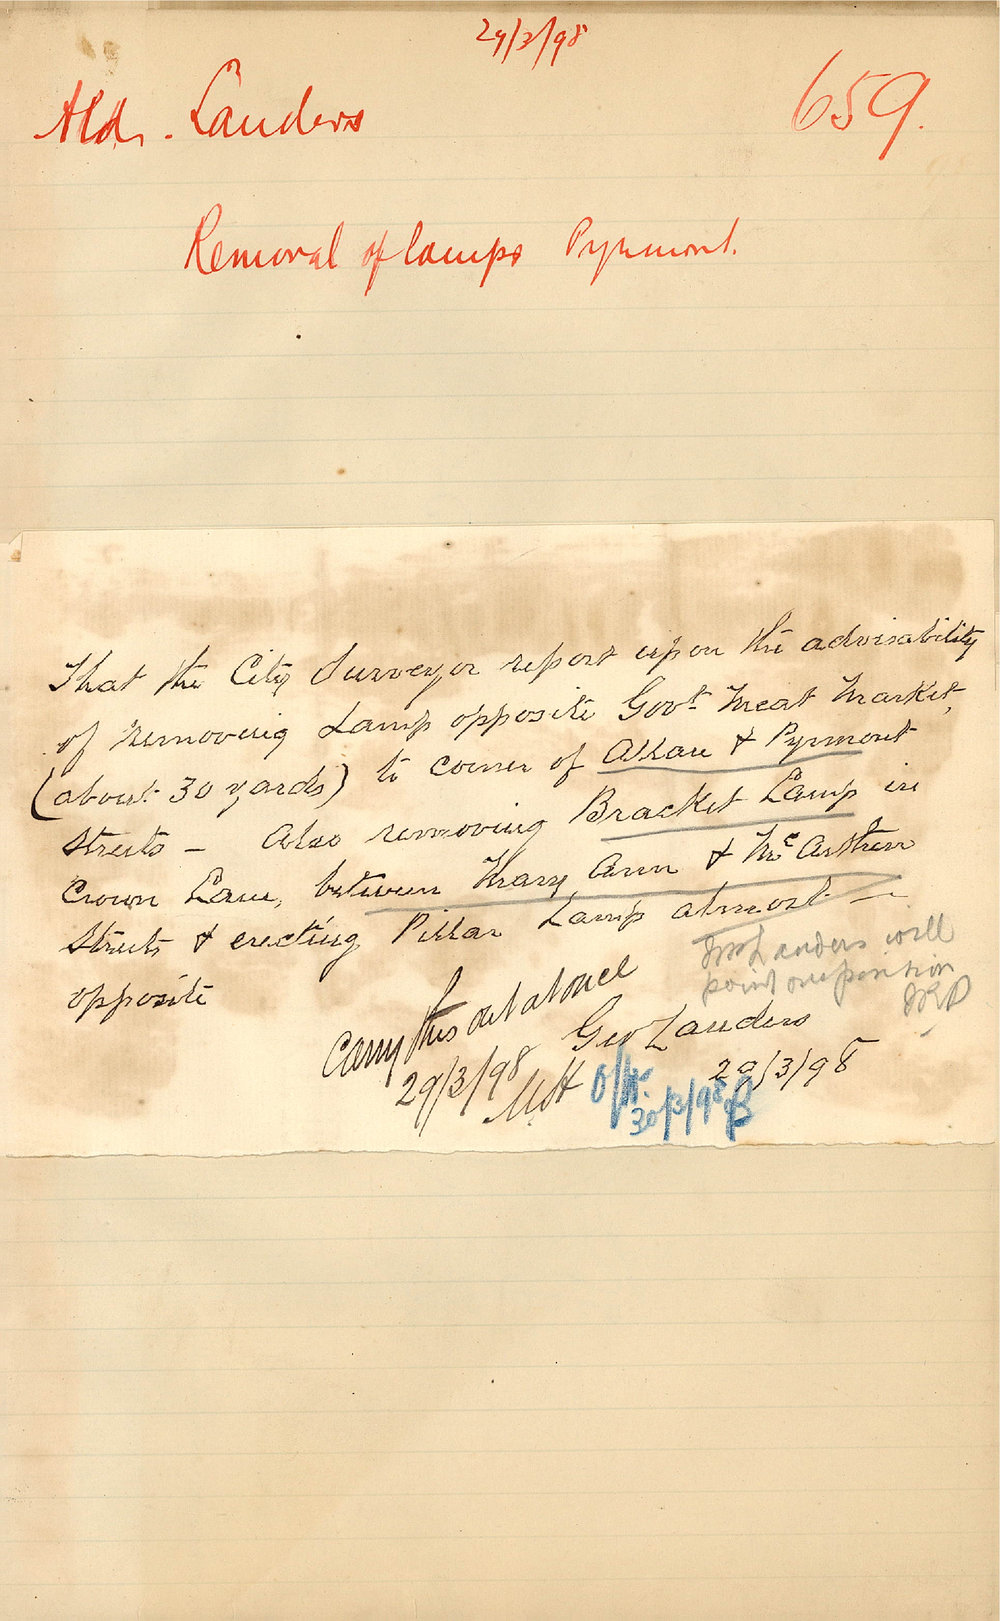 29/3/98
Ald. Landers
659.
Removal of lamps Pyrmont.
That the City Surveyor report upon the advisability
of removing Lamp opposite Govt. Meat Market,
(about 30 yards) to corner of Allan & Pyrmont
Streets - Also removing Bracket Lamp in
Crown Lane, between Mary Ann & McArthur
Streets & erecting Pillar Lamp almost
opposite
Mr Landers will
point out position
Carry this out at once
Geo Landers
29/3/98
29/3/98
30/3/98